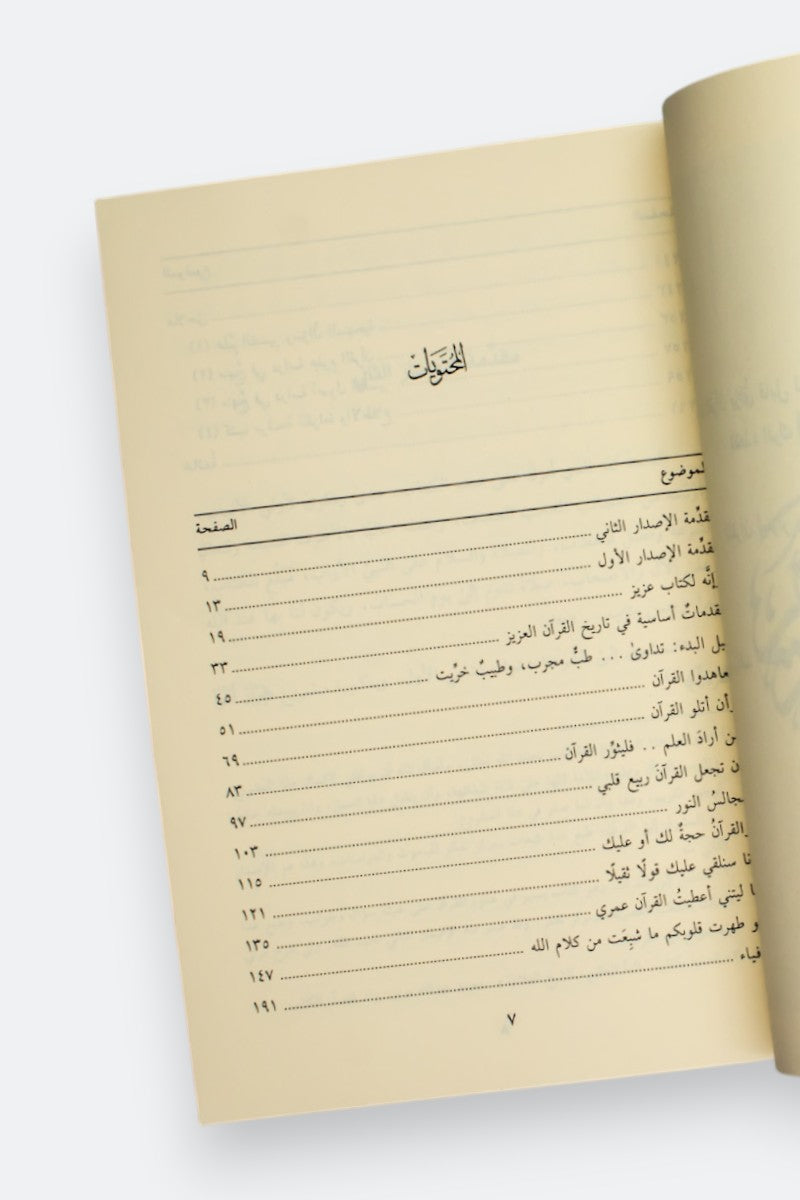 المُحتَوَيَات
الموضوع الصفحة
مقدِّمة الإصدار الثاني ٩
مقدِّمة الإصدار الأول ١٣
إنَّه لكتاب عزيز ١٩
مقدماتٌ أساسية في تاريخ القرآن العزيز ٣٣
البدء: تداوىٰ ... طبٌّ مجرب، وطبيبٌ خرِّيت ٤٥
تعاهدوا القرآن ٥١
وأن أتلو القرآن ٦٩
من أرادَ العلم .. فليثوِّر القرآن ٨٣
أن تجعل القرآنَ ربيع قلبي ٩٧
مجالسُ النور ١٠٣
والقرآنُ حجةٌ لك أو عليك ١١٥
إنا سنلقي عليك قولًا ثقيلًا ١٢١
يا ليتني أعطيتُ القرآن عمري ١٣٥
لو طهرت قلوبكم ما شبِعَت من كلام الله ١٤٧
أفياء ١٩١
٧